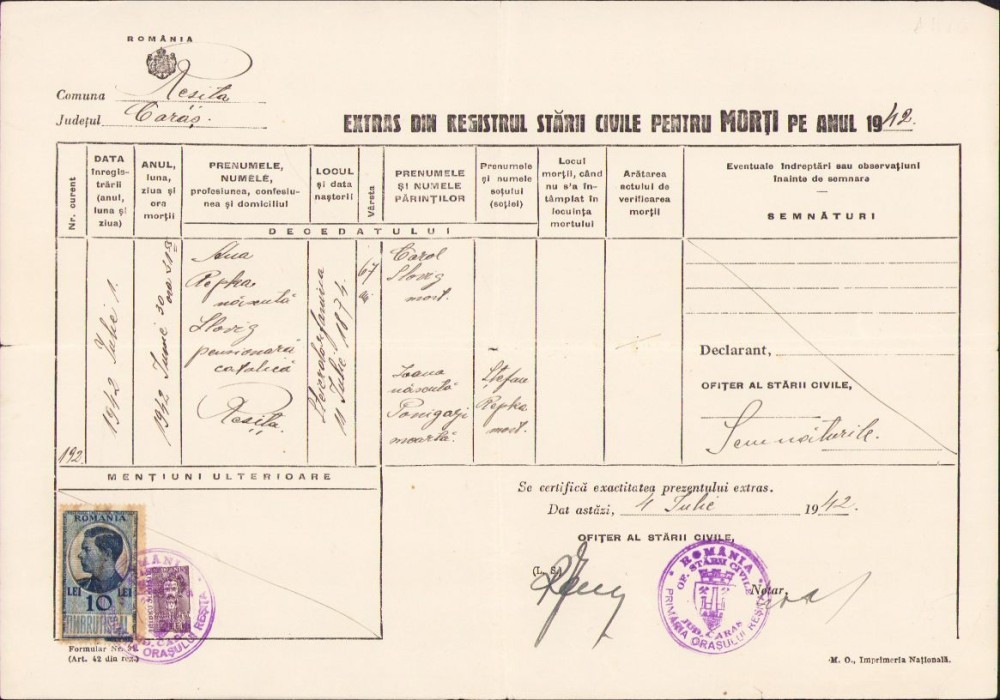 ROMÂNIA
Comuna Resita
Județul Caraș.
EXTRAS DIN REGISTRUL STĂRII CIVILE PENTRU MORȚI PE ANUL 1942.
Nr. curent
DATA înregis-trării (anul, luna și ziua)
ANUL, luna, ziua și ora morții
PRENUMELE, NUMELE, profesiunea, confesiu-nea și domiciliul
LOCUL și data nașterii
Vârsta
PRENUMELE ȘI NUMELE PĂRINȚILOR
Prenumele și numele soțului (soției)
Locul morții, când nu s'a în-tâmplat în locuința mortului
Arătarea actului de verificarea morții
Eventuale îndreptări sau observațiuni înainte de semnare
SEMNĂTURI
DECEDATULUI
192.
1942 Iulie 1.
1942 Iunie 30 ora
Ana
Repka
născută
Slovig
pensionară
catolică
Resița.
11 Iulie 1874.
67
Carol
Slovig
mort.
Ioana
născută
moartă.
Ștefan
Repka
mort.
Declarant,
OFIȚER AL STĂRII CIVILE,
Semnăturile.
MENȚIUNI ULTERIOARE
Se certifică exactitatea prezentului extras.
Dat astăzi, 4 Iulie 1942.
OFIȚER AL STĂRII CIVILE,
(L. S.)
Notar,
ROMÂNIA
OF. STĂRII CIVILE
JUD. CARAȘ
PRIMĂRIA ORAȘULUI REȘIȚA
ROMANIA
LEI 10 LEI
ROMÂNIA
JUD. CARAȘ
ORAȘULUI REȘIȚA
Formular Nr.
(Art. 42 din reg.)
M. O., Imprimeria Națională.